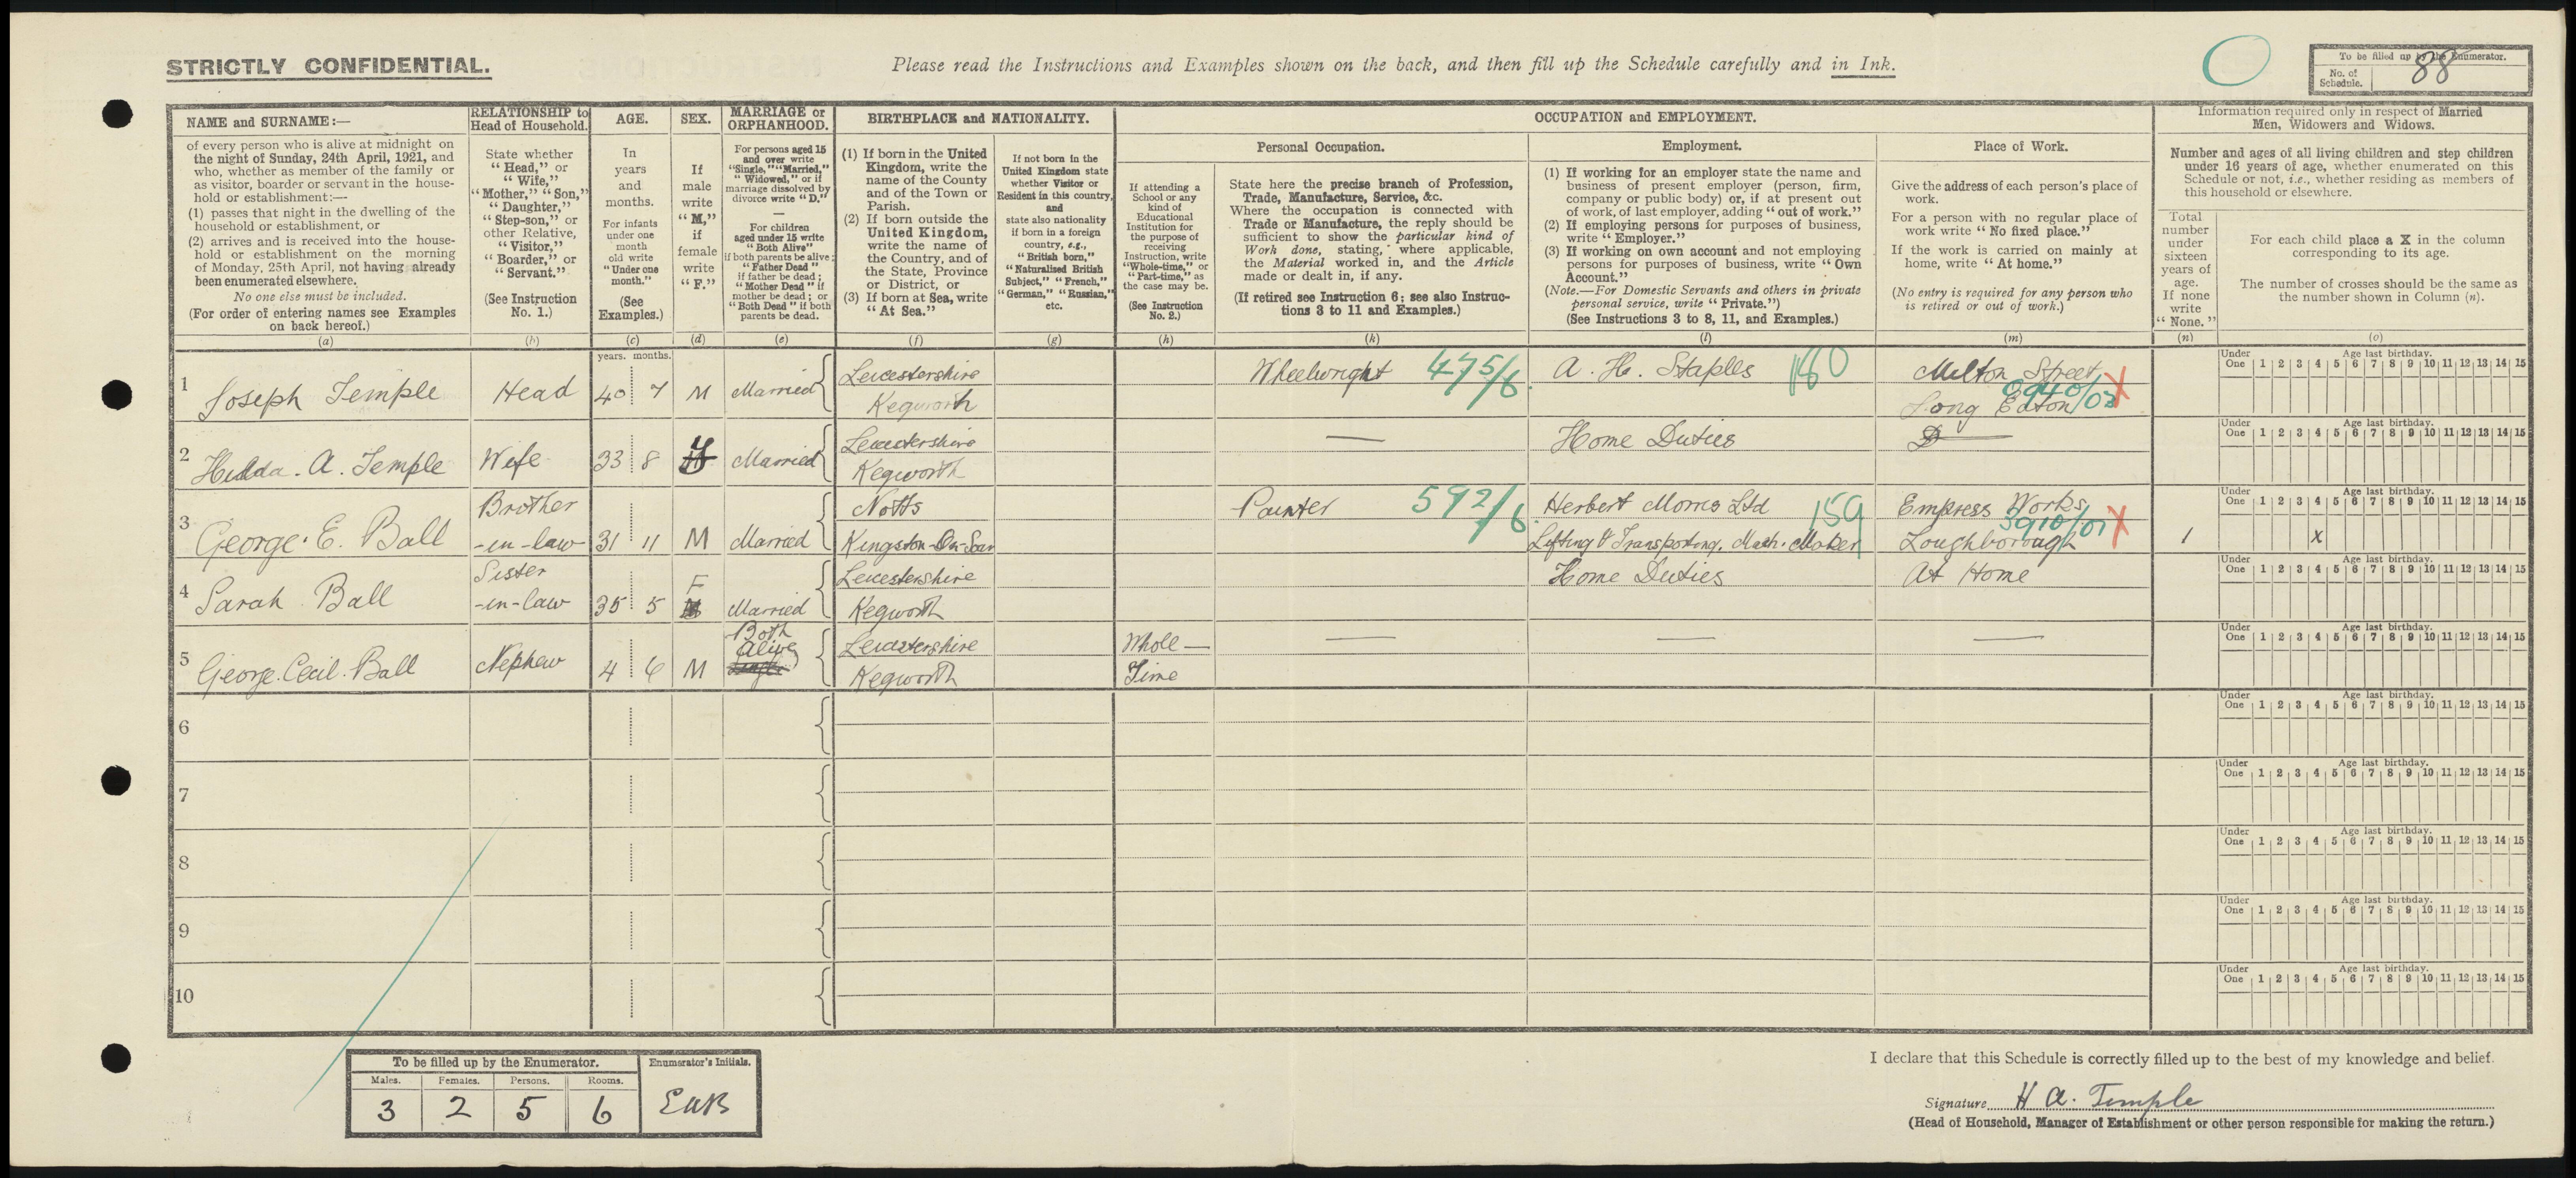 STRICTLY CONFIDENTIAL.
Please read the Instructions and Examples shown on the back, and then fill up the Schedule carefully and in Ink.
To be filled up by the Enumerator.
No. of
Schedule.
88
NAME and SURNAME:—
of every person who is alive at midnight on
the night of Sunday, 24th April, 1921, and
who, whether as member of the family or
as visitor, boarder or servant in the house-
hold or establishment:—
(1) passes that night in the dwelling of the
household or establishment, or
(2) arrives and is received into the house-
hold or establishment on the morning
of Monday, 25th April, not having already
been enumerated elsewhere.
No one else must be included.
(For order of entering names see Examples
on back hereof.)
(a)
RELATIONSHIP to
Head of Household.
State whether
"Head," or
"Wife,"
"Mother," "Son,"
"Daughter,"
"Step-son," or
other Relative,
"Visitor,"
"Boarder," or
"Servant."
(See Instruction
No. 1.)
(b)
AGE.
In
years
and
months.
For infants
under one
month
old write
"Under one
month."
(See
Examples.)
(c)
SEX.
If
male
write
"M,"
if
female
write
"F."
(d)
MARRIAGE or
ORPHANHOOD.
For persons aged 15
and over write
"Single," "Married,"
"Widowed," or if
marriage dissolved by
divorce write "D."
—
For children
aged under 15 write
"Both Alive"
if both parents be alive;
"Father Dead"
if father be dead;
"Mother Dead" if
mother be dead; or
"Both Dead" if both
parents be dead.
(e)
BIRTHPLACE and NATIONALITY.
(1) If born in the United
Kingdom, write the
name of the County
and of the Town or
Parish.
(2) If born outside the
United Kingdom,
write the name of
the Country, and of
the State, Province
or District, or
(3) If born at Sea, write
"At Sea."
(f)
If not born in the
United Kingdom state
whether Visitor or
Resident in this country,
and
state also nationality
if born in a foreign
country, e.g.,
"British born,"
"Naturalised British
Subject," "French,"
"German," "Russian,"
etc.
(g)
OCCUPATION and EMPLOYMENT.
If attending a
School or any
kind of
Educational
Institution for
the purpose of
receiving
Instruction, write
"Whole-time," or
"Part-time," as
the case may be.
(See Instruction
No. 2.)
(h)
Personal Occupation.
State here the precise branch of Profession,
Trade, Manufacture, Service, &c.
Where the occupation is connected with
Trade or Manufacture, the reply should be
sufficient to show the particular kind of
Work done, stating, where applicable,
the Material worked in, and the Article
made or dealt in, if any.
(If retired see Instruction 6; see also Instruc-
tions 3 to 11 and Examples.)
(k)
Employment.
(1) If working for an employer state the name and
business of present employer (person, firm,
company or public body) or, if at present out
of work, of last employer, adding "out of work."
(2) If employing persons for purposes of business,
write "Employer."
(3) If working on own account and not employing
persons for purposes of business, write "Own
Account."
(Note.—For Domestic Servants and others in private
personal service, write "Private.")
(See Instructions 3 to 8, 11, and Examples.)
(l)
Place of Work.
Give the address of each person's place of
work.
For a person with no regular place of
work write "No fixed place."
If the work is carried on mainly at
home, write "At home."
(No entry is required for any person who
is retired or out of work.)
(m)
Information required only in respect of Married
Men, Widowers and Widows.
Number and ages of all living children and step children
under 16 years of age, whether enumerated on this
Schedule or not, i.e., whether residing as members of
this household or elsewhere.
Total
number
under
sixteen
years of
age.
If none
write
"None."
(n)
For each child place a X in the column
corresponding to its age.
The number of crosses should be the same as
the number shown in Column (n).
(o)
years. months.
Under One Age last birthday. 1 2 3 4 5 6 7 8 9 10 11 12 13 14 15
1 Joseph Temple Head 40 7 M Married Leicestershire Kegworth Wheelwright 475/6 A. H. Staples 160 Milton Street Long Eaton
Under One Age last birthday. 1 2 3 4 5 6 7 8 9 10 11 12 13 14 15
2 Hilda. A. Temple Wife 33 8 Married Leicestershire Kegworth — Home Duties
Under One Age last birthday. 1 2 3 4 5 6 7 8 9 10 11 12 13 14 15
3 George. E. Ball Brother -in-law 31 11 M Married Notts Kingston-On-Soar Painter 592/6 Herbert Morris Ltd 159 Lifting & Transporting. Mach. Maker Empress Works Loughborough 1 x
Under One Age last birthday. 1 2 3 4 5 6 7 8 9 10 11 12 13 14 15
4 Sarah Ball Sister -in-law 35 5 F Married Leicestershire Kegworth Home Duties At Home
Under One Age last birthday. 1 2 3 4 5 6 7 8 9 10 11 12 13 14 15
5 George. Cecil. Ball Nephew 4 6 M Both Alive Leicestershire Kegworth Whole — Time — — —
Under One Age last birthday. 1 2 3 4 5 6 7 8 9 10 11 12 13 14 15
6
Under One Age last birthday. 1 2 3 4 5 6 7 8 9 10 11 12 13 14 15
7
Under One Age last birthday. 1 2 3 4 5 6 7 8 9 10 11 12 13 14 15
8
Under One Age last birthday. 1 2 3 4 5 6 7 8 9 10 11 12 13 14 15
9
Under One Age last birthday. 1 2 3 4 5 6 7 8 9 10 11 12 13 14 15
10
To be filled up by the Enumerator.
Males. Females. Persons. Rooms.
3 2 5 6
Enumerator's Initials.
EWB
I declare that this Schedule is correctly filled up to the best of my knowledge and belief.
Signature H A. Temple
(Head of Household, Manager of Establishment or other person responsible for making the return.)